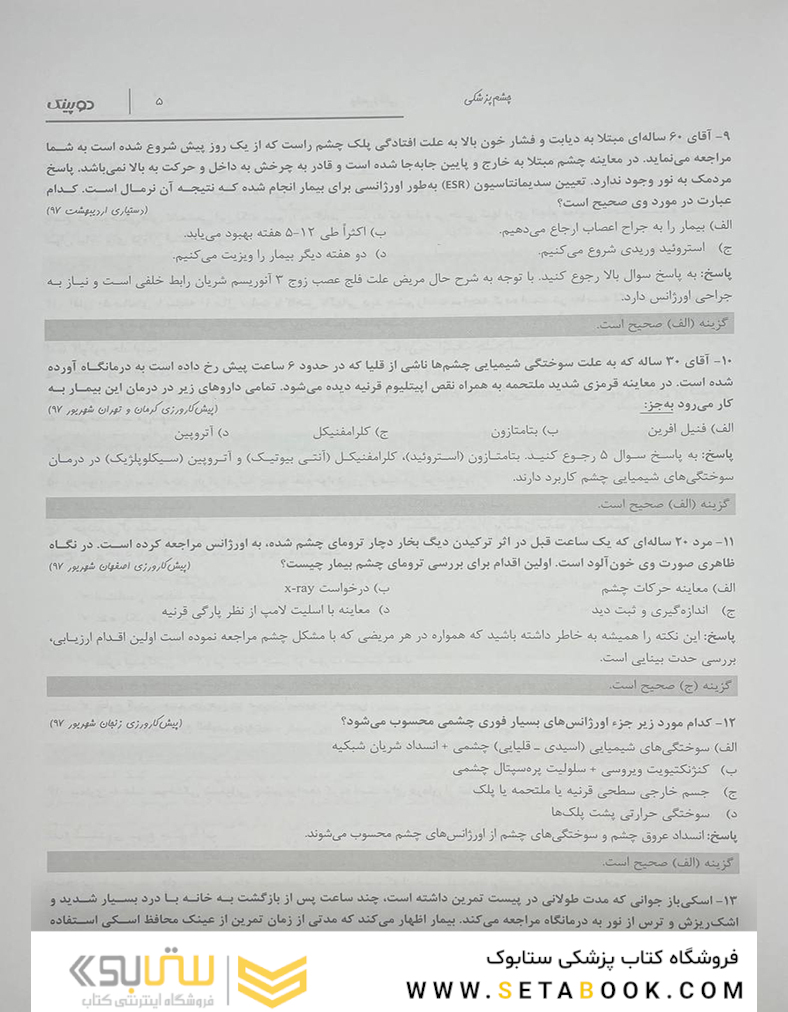 چشم‌پزشکی ۵ دوپینگ
۹- آقای ۶۰ ساله‌ای مبتلا به دیابت و فشار خون بالا به علت افتادگی پلک چشم راست که از یک روز پیش شروع شده است به شما
مراجعه می‌نماید. در معاینه چشم مبتلا به خارج و پایین جابه‌جا شده است و قادر به چرخش به داخل و حرکت به بالا نمی‌باشد. پاسخ
مردمک به نور وجود ندارد. تعیین سدیمانتاسیون (ESR) به‌طور اورژانسی برای بیمار انجام شده که نتیجه آن نرمال است. کدام
عبارت در مورد وی صحیح است؟ (دستیاری اردیبهشت ۹۷)
الف) بیمار را به جراح اعصاب ارجاع می‌دهیم. ب) اکثراً طی ۱۲-۵ هفته بهبود می‌یابد.
ج) استروئید وریدی شروع می‌کنیم. د) دو هفته دیگر بیمار را ویزیت می‌کنیم.
پاسخ: به پاسخ سوال بالا رجوع کنید. با توجه به شرح حال مریض علت فلج عصب زوج ۳ آنوریسم شریان رابط خلفی است و نیاز به
جراحی اورژانس دارد.
گزینه (الف) صحیح است.
۱۰- آقای ۳۰ ساله که به علت سوختگی شیمیایی چشم‌ها ناشی از قلیا که در حدود ۶ ساعت پیش رخ داده است به درمانگاه آورده
شده است. در معاینه قرمزی شدید ملتحمه به همراه نقص اپیتلیوم قرنیه دیده می‌شود. تمامی داروهای زیر در درمان این بیمار به
کار می‌رود به‌جز: (پیش‌کارورزی کرمان و تهران شهریور ۹۷)
الف) فنیل افرین ب) بتامتازون ج) کلرامفنیکل د) آتروپین
پاسخ: به پاسخ سوال ۵ رجوع کنید. بتامتازون (استروئید)، کلرامفنیکل (آنتی بیوتیک) و آتروپین (سیکلوپلژیک) در درمان
سوختگی‌های شیمیایی چشم کاربرد دارند.
گزینه (الف) صحیح است.
۱۱- مرد ۲۰ ساله‌ای که یک ساعت قبل در اثر ترکیدن دیگ بخار دچار ترومای چشم شده، به اورژانس مراجعه کرده است. در نگاه
ظاهری صورت وی خون‌آلود است. اولین اقدام برای بررسی ترومای چشم بیمار چیست؟ (پیش‌کارورزی اصفهان شهریور ۹۷)
الف) معاینه حرکات چشم ب) درخواست x-ray
ج) اندازه‌گیری و ثبت دید د) معاینه با اسلیت لامپ از نظر پارگی قرنیه
پاسخ: این نکته را همیشه به خاطر داشته باشید که همواره در هر مریضی که با مشکل چشم مراجعه نموده است اولین اقدام ارزیابی،
بررسی حدت بینایی است.
گزینه (ج) صحیح است.
۱۲- کدام مورد زیر جزء اورژانس‌های بسیار فوری چشمی محسوب می‌شود؟ (پیش‌کارورزی زنجان شهریور ۹۷)
الف) سوختگی‌های شیمیایی (اسیدی ـ قلیایی) چشمی + انسداد شریان شبکیه
ب) کنژنکتیویت ویروسی + سلولیت پره‌سپتال چشمی
ج) جسم خارجی سطحی قرنیه یا ملتحمه یا پلک
د) سوختگی حرارتی پشت پلک‌ها
پاسخ: انسداد عروق چشم و سوختگی‌های چشم از اورژانس‌های چشم محسوب می‌شوند.
گزینه (الف) صحیح است.
۱۳- اسکی‌باز جوانی که مدت طولانی در پیست تمرین داشته است، چند ساعت پس از بازگشت به خانه با درد بسیار شدید و
اشک‌ریزش و ترس از نور به درمانگاه مراجعه می‌کند. بیمار اظهار می‌کند که مدتی از زمان تمرین از عینک محافظ اسکی استفاده
فروشگاه کتاب پزشکی ستابوک
WWW.SETABOOK.COM
ستابوک
فروشگاه اینترنتی کتاب